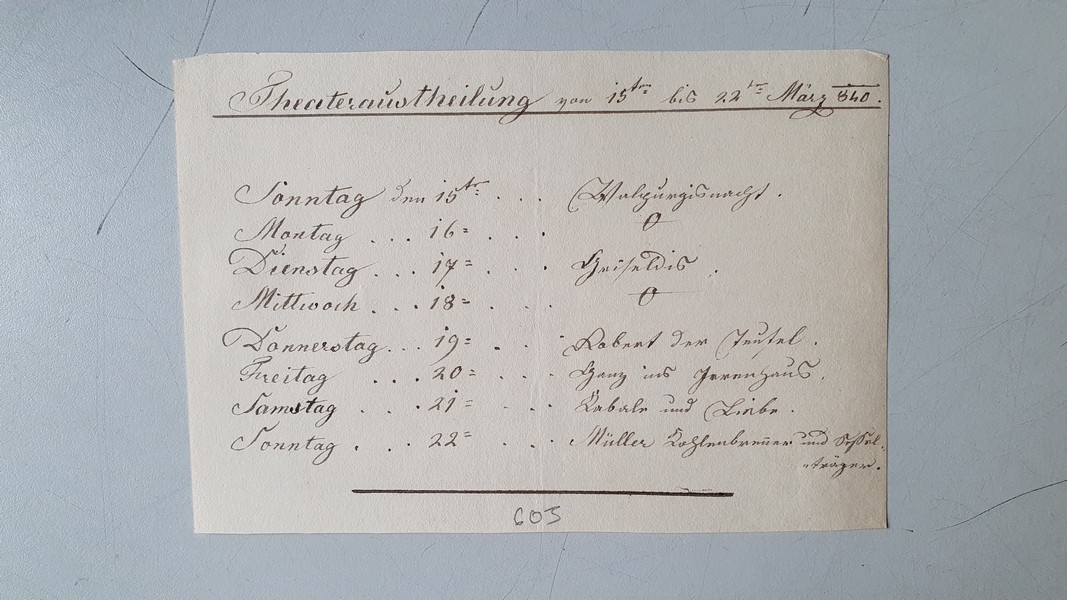 Theateraustheilung von 15ten bis 22ten März 840.
Sonntag den 15ten . . . Walpurgisnacht.
Montag . . . 16= . . . 0
Dienstag . . . 17= . . . Griseldis.
Mittwoch . . . 18= . . . 0
Donnerstag . . . 19= . . . Robert der Teufel.
Freitag . . . 20= . . . Ganz ins Irrenhaus.
Samstag . . . 21= . . . Kabale und Liebe.
Sonntag . . . 22= . . . Müller Kohlenbrenner und Sessel-
träger.
603